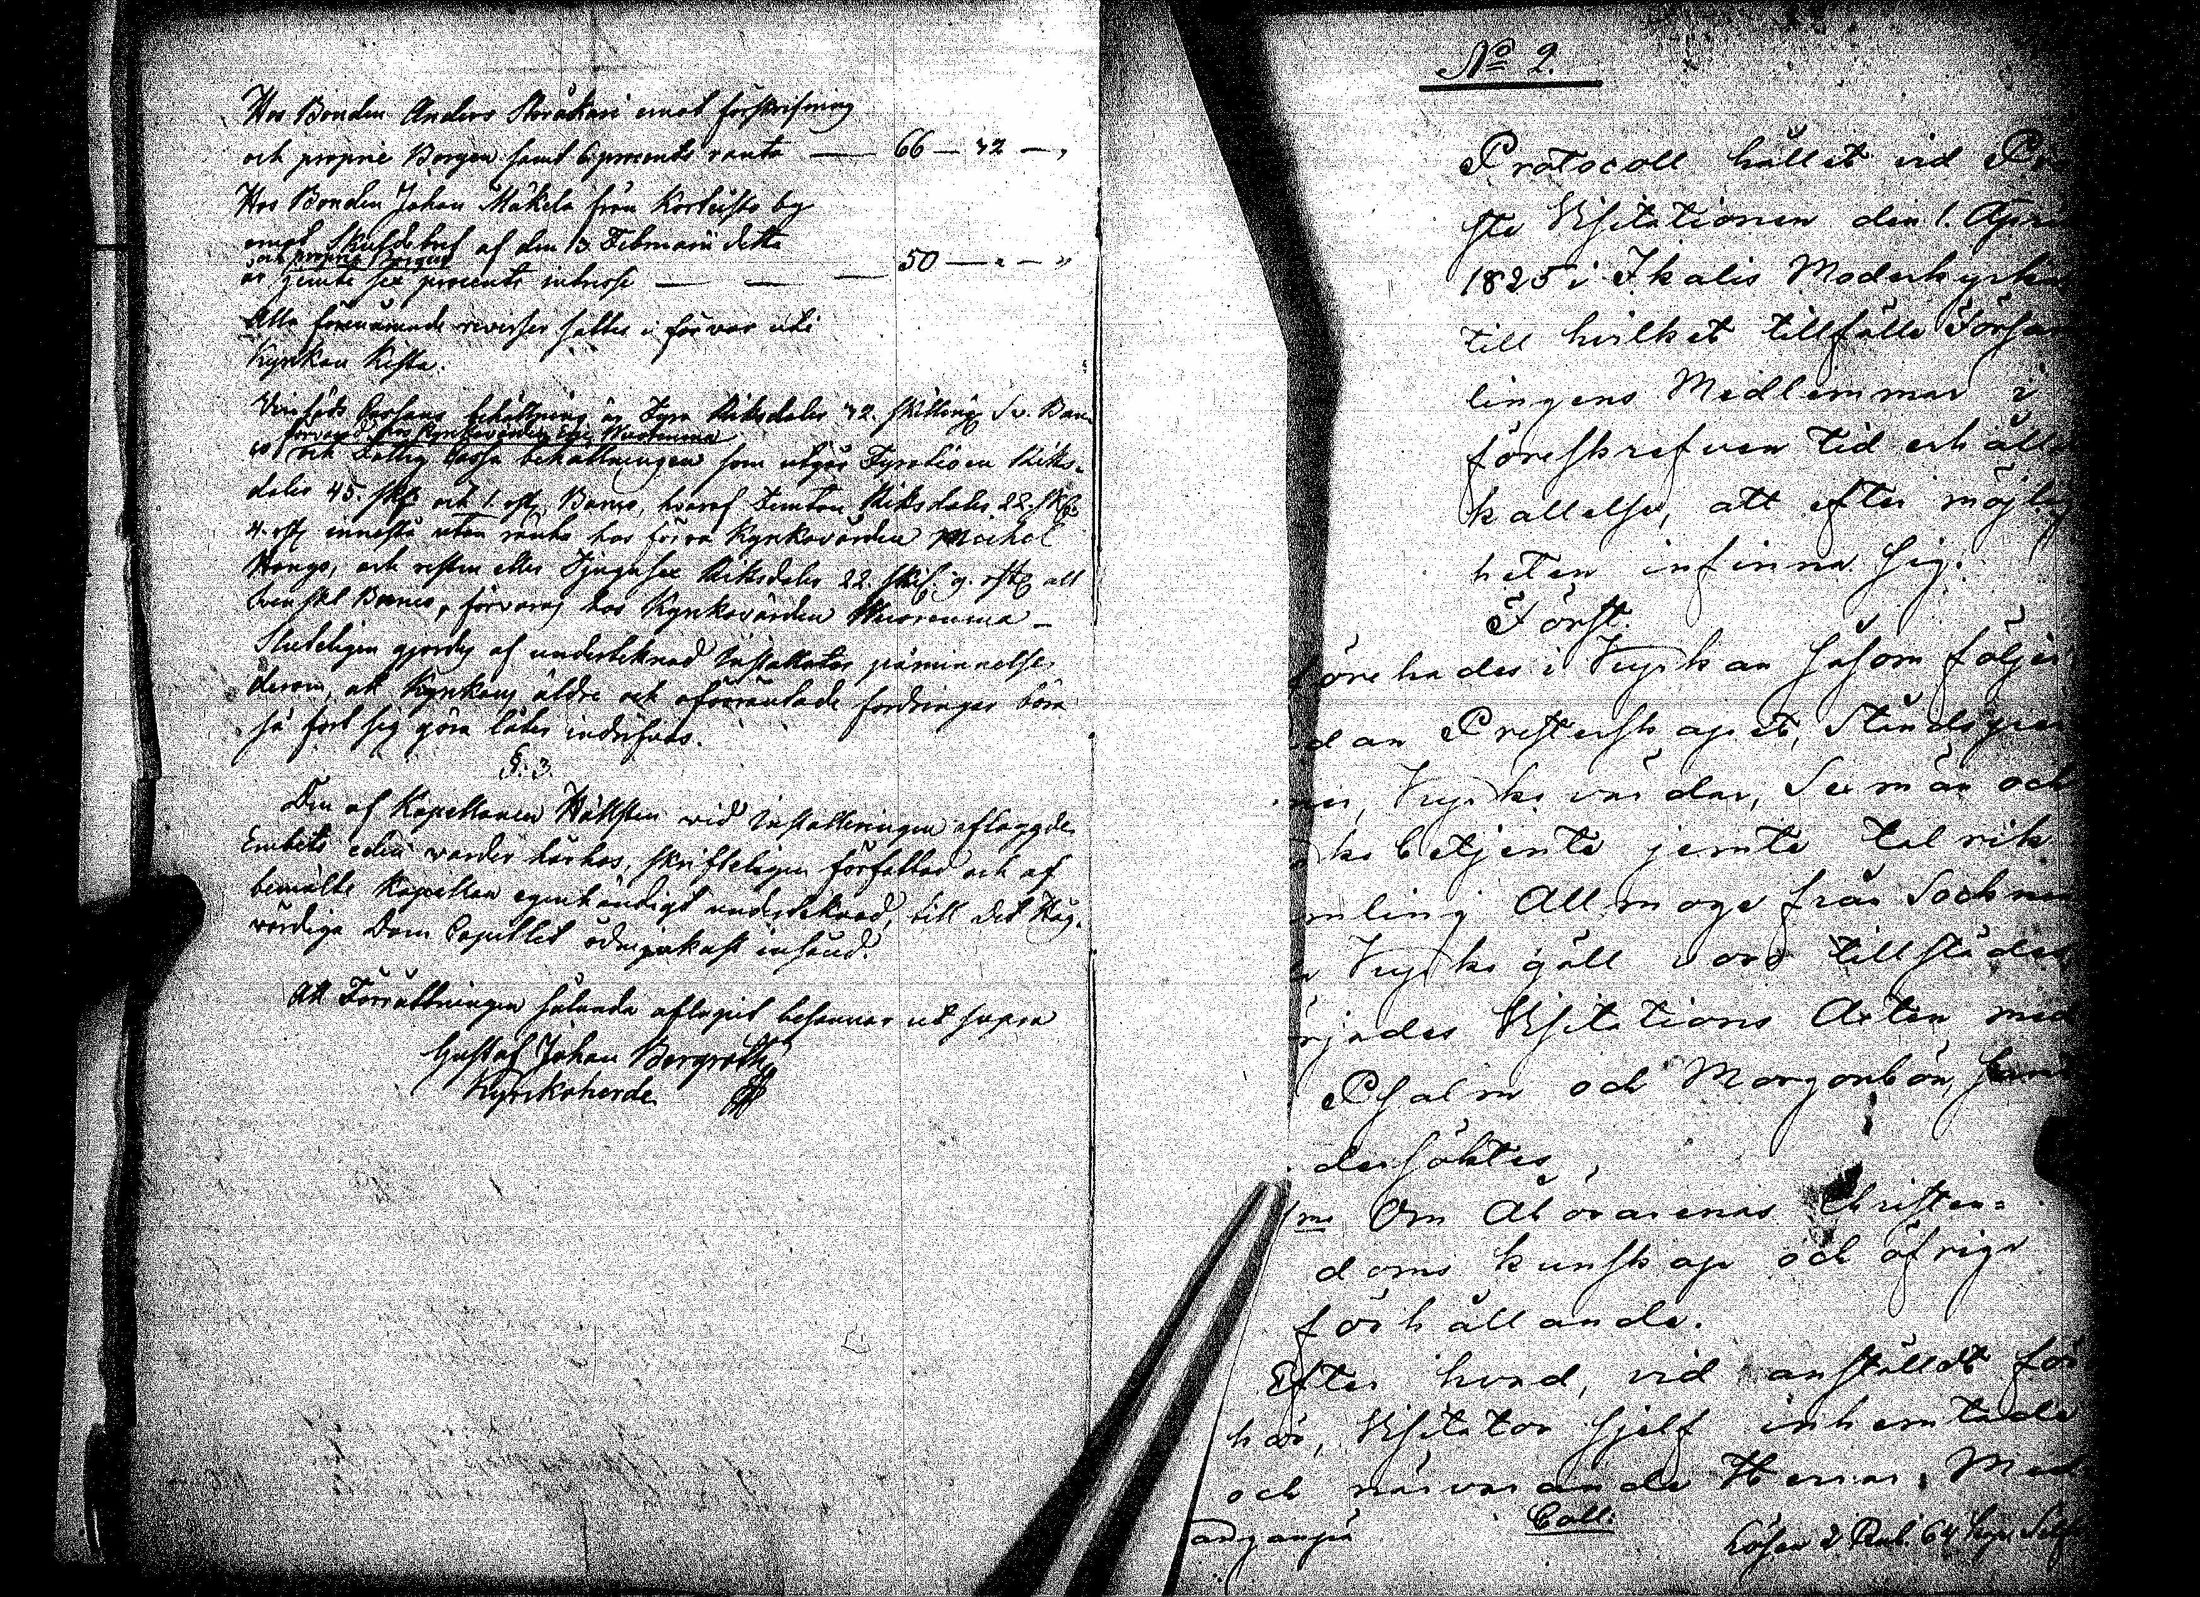 Hos Bonden Anders Storåkari emot förskrifning
och proprie Borgen samt 6 procents ranta — 66 — 32 — „
Hos Bonden Johan Mäkelä från Korteisto by
emot Skuldebref af den 13 Februarii detta
och proprie Borgen
år jemte sex procents intresse — — — 50 — „ — „
Alla förenämnde reverser sattes i förvar uti
Kyrkan Kista.
Cassans behållning är Fyra Riksdaler 32. skilling Sv. Ban
förvarad hos Kyrkovärden
co och Fattig Cassa behållningen som utgör Fyratioen Riks-
daler 45. sk och 1. rst. Banco, hvaraf Femton Riksdaler 22. sk
4. rst innestå utan ränta hos förra Kyrkovärden Michel
Hongo, och resten eller Tjugusex Riksdaler 22. skil. 9. rst allt
Svenskt Banco, förvaras hos Kyrkovärden Wuorenmaa —
Sluteligen gjordes af undertecknad Installator påminnelse
derom, att Kyrkans äldre och oförräntade fordringar böra
så fort sig göra låter indrifvas.
§. 3.
Den af Kapellanen Hällsten vid Installeringen aflaggde
Embets eden warder härhos, skrifteligen författad och af
bemälte Kapellan egenhändigt undertecknad, till det Hög-
wördiga Dom Capitlet ödmjukast insänd.
Att Förrättningen sålunda aflupit besannar ut supra
Gustaf Johan Bergroth
Kyrkoherde
No 2.
Protocoll hållet vid Pro
ste Visitationen den 1. Apri
1825 i Ikalis Moderkyrka
till hvilket tillfälle Försam
lingens Medlemmar i
föreskrefven tid erhållit
kallelse, att efter möjlig
heten infinna sig.
Först.
förehades i Kyrkan såsom följer
dan Presterskapet, Ståndsper
ner, Kyrko värdar, Sexmän och
ko betjente jemte talrik
mling Allmoge från Sochnen
Kyrko gäll voro tillstädes
rjades Visitations Acten med
Psalm och Morgonbön, hvar
dersöktes,
1mo Om Åhörarenas Christen=
doms kunskap och öfriga
förhållande.
Efter hvad, vid anställdt för
hör, Visitator sjelf inhemtade
och närvarande Herrar Med
Coll:
Lösen 2 Rub. 64 kop. Silf